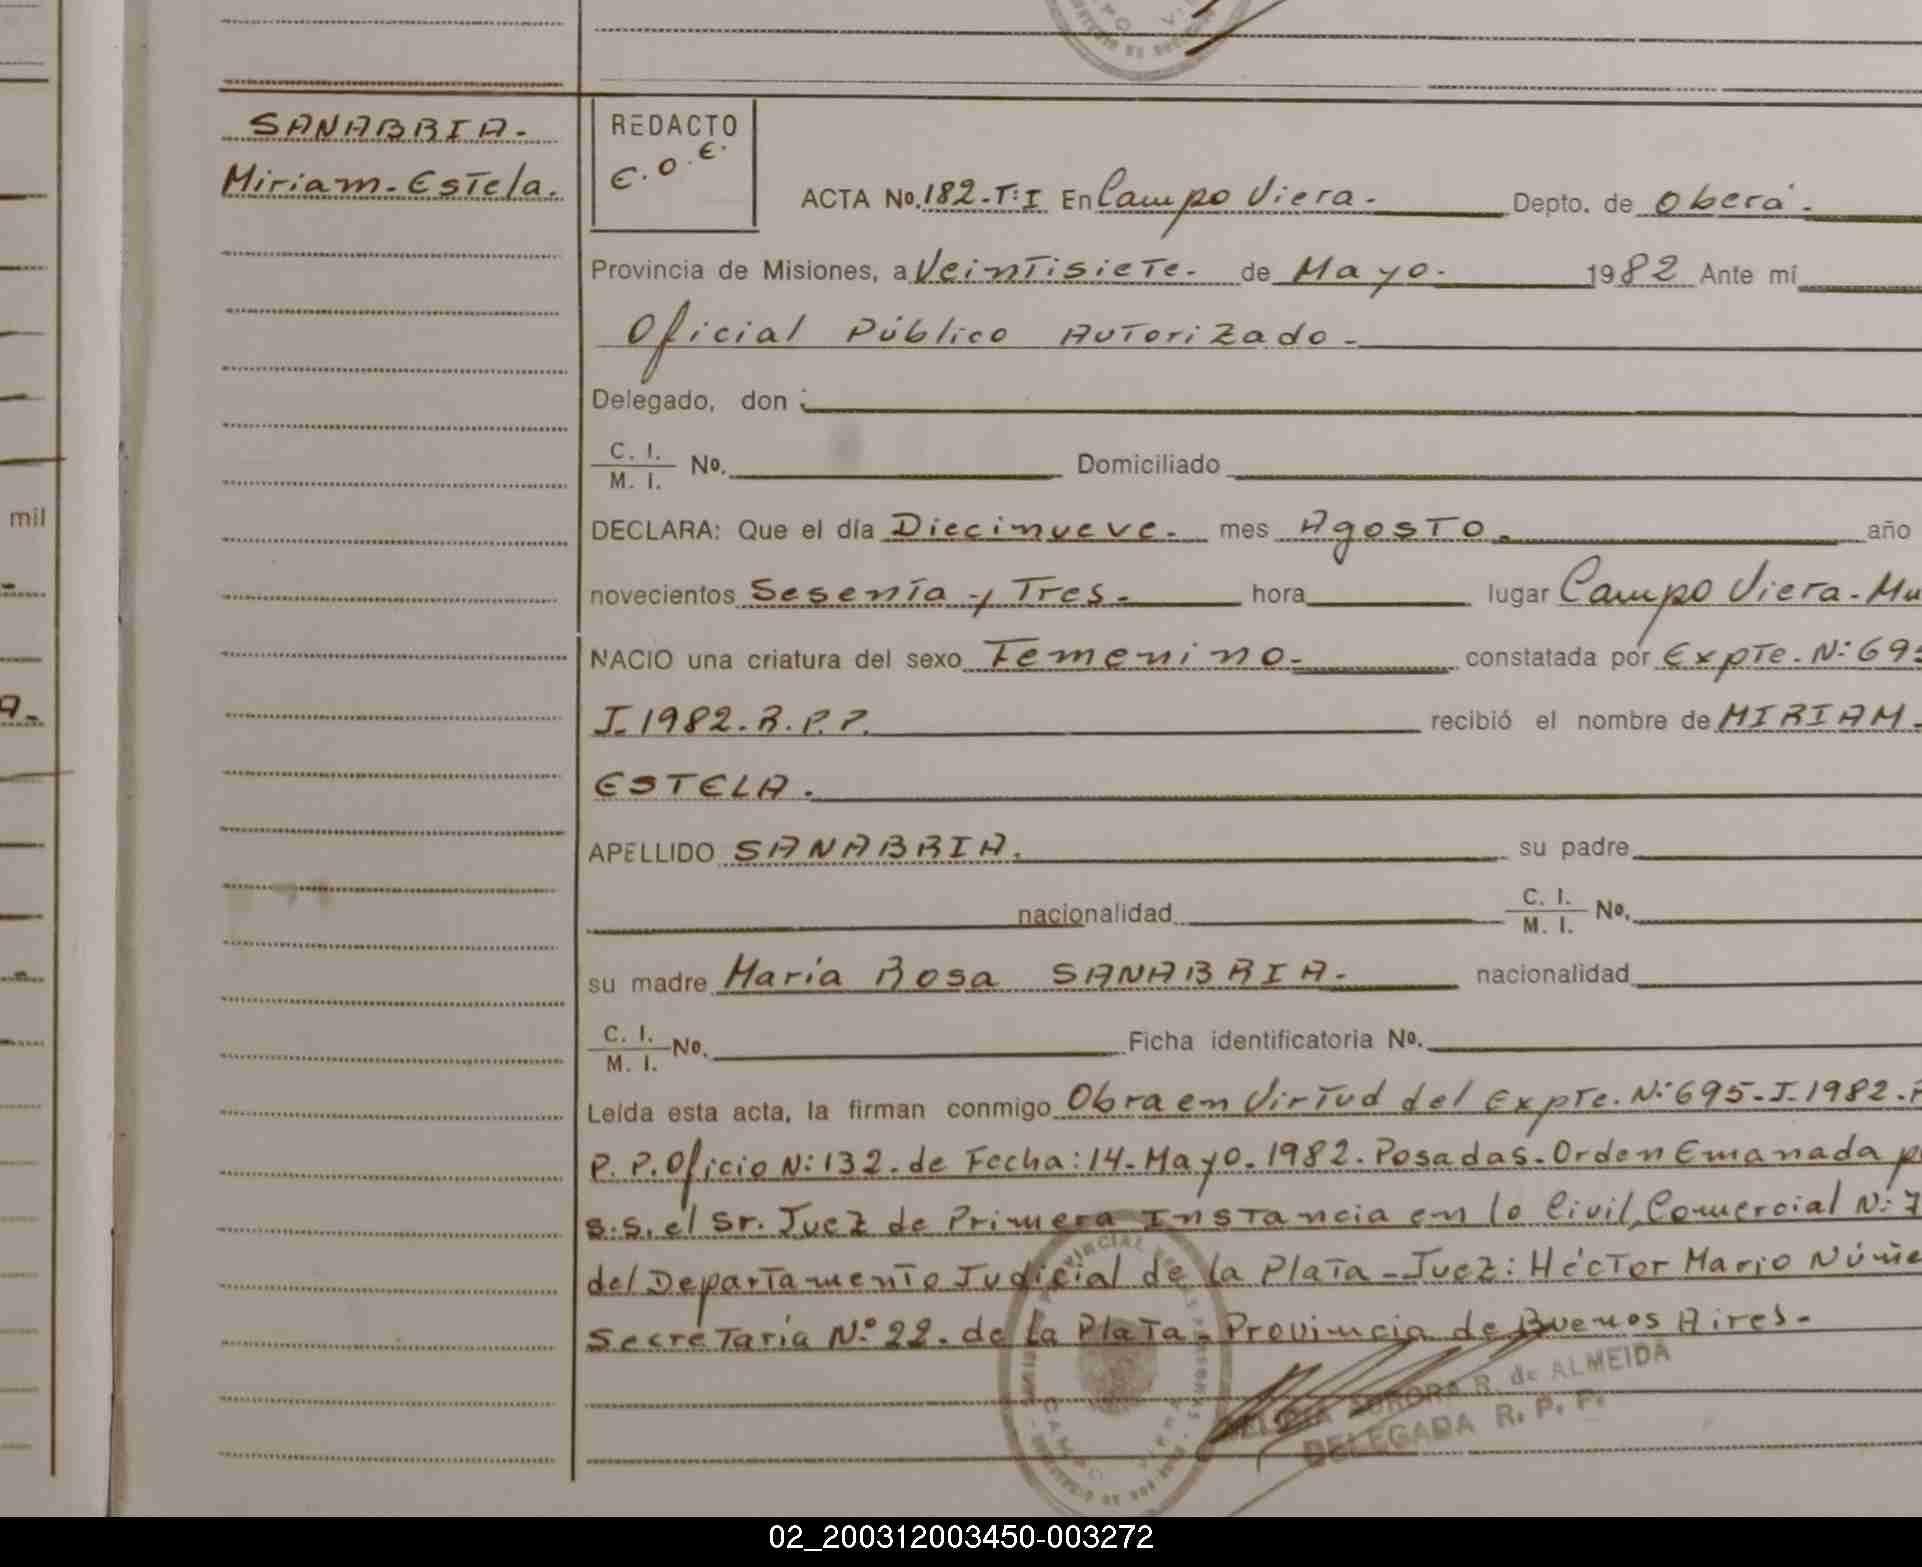 SANABRIA.
Miriam-Estela.
REDACTO
E.O.E.
ACTA No. 182-T:I En Campo Viera. Depto. de Oberá.
Provincia de Misiones, a Veintisiete. de Mayo. 1982 Ante mí
Oficial Público Autorizado.
Delegado, don
C. I.
M. I. No. Domiciliado
DECLARA: Que el día Diecinueve. mes Agosto. año
mil
novecientos Sesenta y Tres. hora lugar Campo Viera. Mu
NACIO una criatura del sexo Femenino. constatada por Expte. N:695
I.1982.R.P.P. recibió el nombre de MIRIAM.
ESTELA.
APELLIDO SANABRIA. su padre
nacionalidad C. I.
M. I. No.
su madre María Rosa SANABRIA. nacionalidad
C. I.
M. I. No. Ficha identificatoria No.
Leída esta acta, la firman conmigo Obra en Virtud del Expte. N:695-I-1982.R
P.P. Oficio N:132. de Fecha: 14. Mayo. 1982. Posadas. Orden Emanada p
s.s. el Sr. Juez de Primera Instancia en lo Civil, Comercial N:7
del Departamento Judicial de la Plata - Juez: Héctor Mario Núñe
Secretaría N:º22. de la Plata. Provincia de Buenos Aires.
AURORA R. de ALMEIDA
DELEGADA R. P. P.
02_200312003450-003272